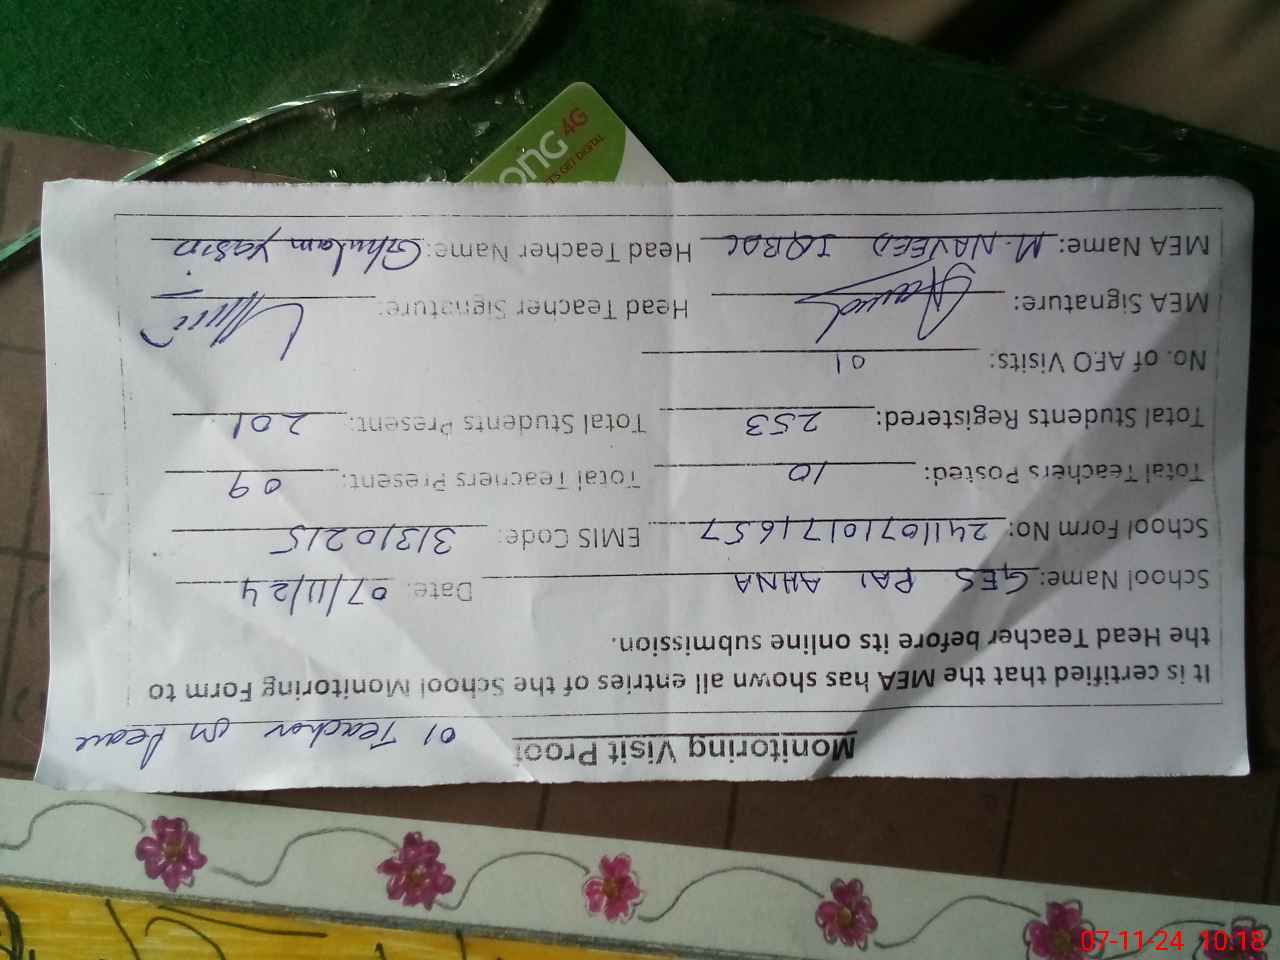 Monitoring Visit Proof 01 Teacher on Leave
It is certified that the MEA has shown all entries of the School Monitoring Form to
the Head Teacher before its online submission.
School Name: GES PAI AHNA Date: 07/11/24
School Form No: 24110710171657 EMIS Code: 31310215
Total Teachers Posted: 10 Total Teachers Present: 09
Total Students Registered: 253 Total Students Present: 201
No. of AEO Visits: 01
MEA Signature: Head Teacher Signature:
MEA Name: M. NAVEED IQBAL Head Teacher Name: Ghulam Yasin
ONG 4G
LET'S GET DIGITAL
07-11-24 10:18